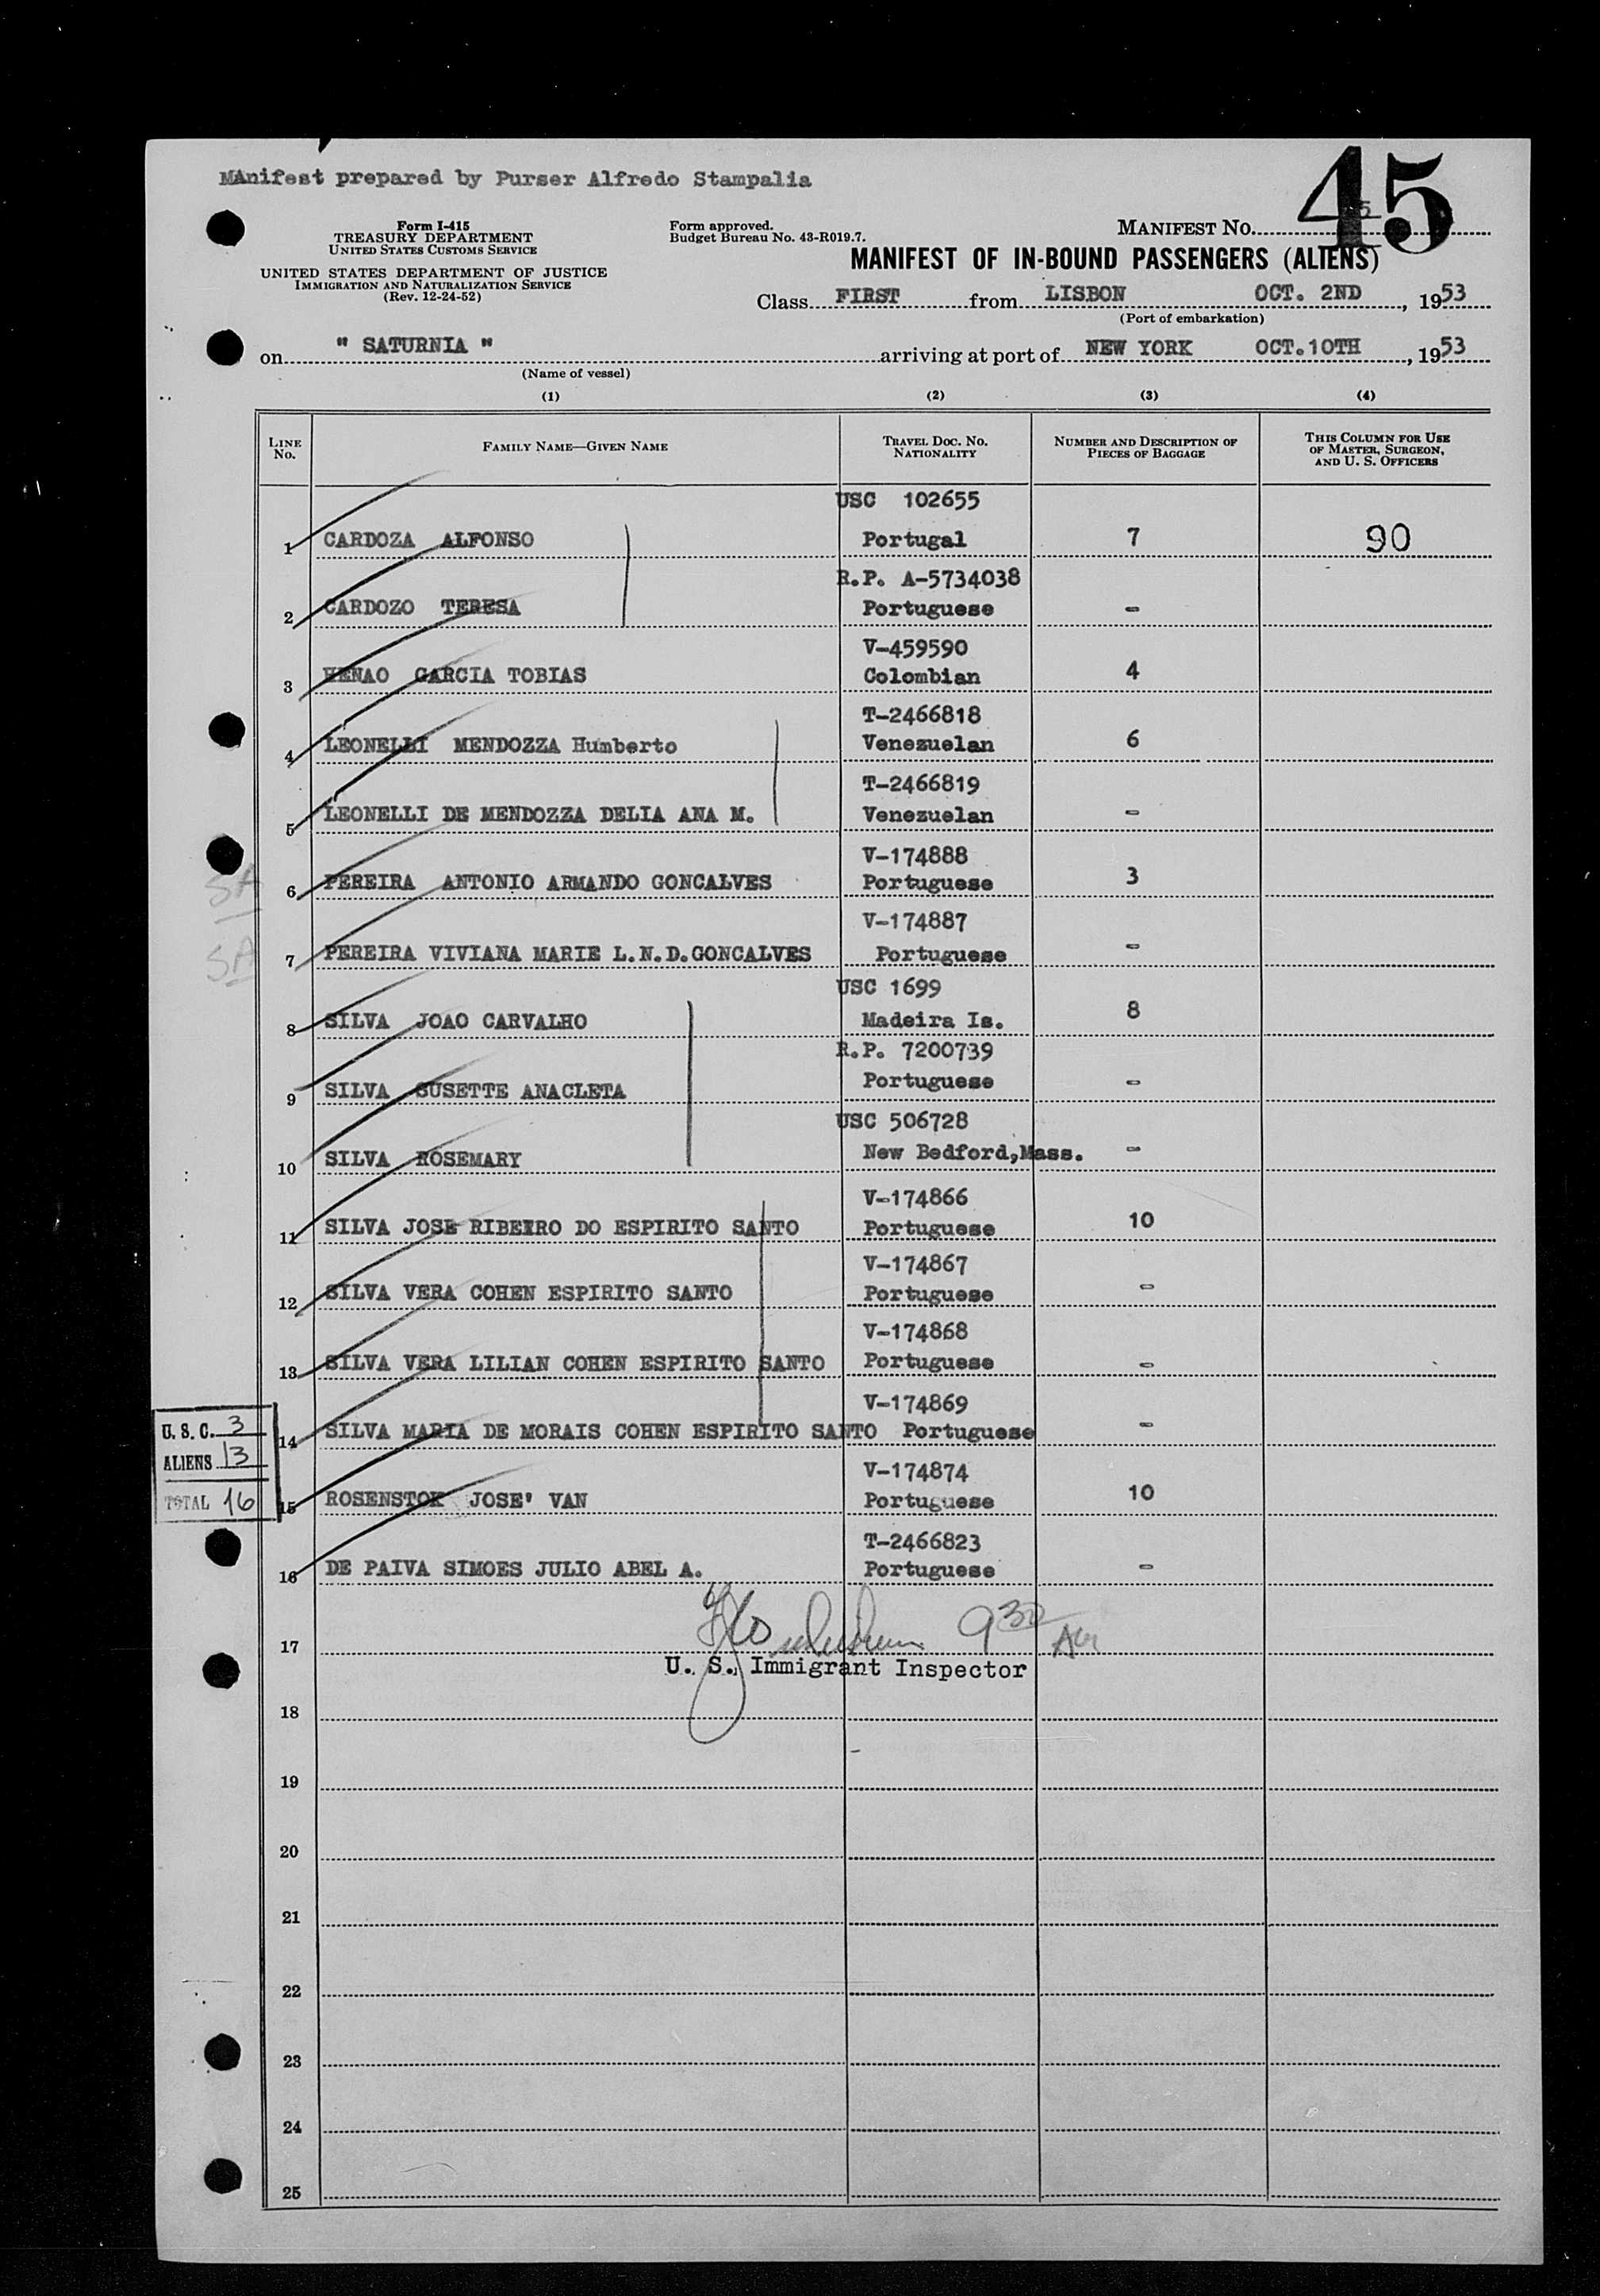 MAnifest prepared by Purser Alfredo Stampalia
45
Form I-415
TREASURY DEPARTMENT
UNITED STATES CUSTOMS SERVICE
UNITED STATES DEPARTMENT OF JUSTICE
IMMIGRATION AND NATURALIZATION SERVICE
(Rev. 12-24-52)
Form approved.
Budget Bureau No. 43-R019.7.
MANIFEST NO. 5
MANIFEST OF IN-BOUND PASSENGERS (ALIENS)
Class FIRST from LISBON OCT. 2ND, 1953
(Port of embarkation)
on " SATURNIA " arriving at port of NEW YORK OCT.10TH, 1953
(Name of vessel)
(1) (2) (3) (4)
LINE No. FAMILY NAME—GIVEN NAME TRAVEL DOC. NO. NATIONALITY NUMBER AND DESCRIPTION OF PIECES OF BAGGAGE THIS COLUMN FOR USE OF MASTER, SURGEON, AND U. S. OFFICERS
USC 102655
1 CARDOZA ALFONSO Portugal 7 90
R.P. A-5734038
2 CARDOZO TERESA Portuguese -
V-459590
3 HENAO GARCIA TOBIAS Colombian 4
T-2466818
4 LEONELLI MENDOZZA Humberto Venezuelan 6
T-2466819
5 LEONELLI DE MENDOZZA DELIA ANA M. Venezuelan -
V-174888
SA 6 PEREIRA ANTONIO ARMANDO GONCALVES Portuguese 3
V-174887
SA 7 PEREIRA VIVIANA MARIE L.N.D.GONCALVES Portuguese -
USC 1699
8 SILVA JOAO CARVALHO Madeira Is. 8
R.P. 7200739
9 SILVA SUSETTE ANACLETA Portuguese -
USC 506728
10 SILVA ROSEMARY New Bedford,Mass. -
V-174866
11 SILVA JOSE RIBEIRO DO ESPIRITO SANTO Portuguese 10
V-174867
12 SILVA VERA COHEN ESPIRITO SANTO Portuguese -
V-174868
13 SILVA VERA LILIAN COHEN ESPIRITO SANTO Portuguese -
V-174869
14 SILVA MARIA DE MORAIS COHEN ESPIRITO SANTO Portuguese -
U. S. C. 3
ALIENS 13
TOTAL 16
V-174874
15 ROSENSTOK JOSE' VAN Portuguese 10
T-2466823
16 DE PAIVA SIMOES JULIO ABEL A. Portuguese -
9 30 AM
17
U. S. Immigrant Inspector
18
19
20
21
22
23
24
25